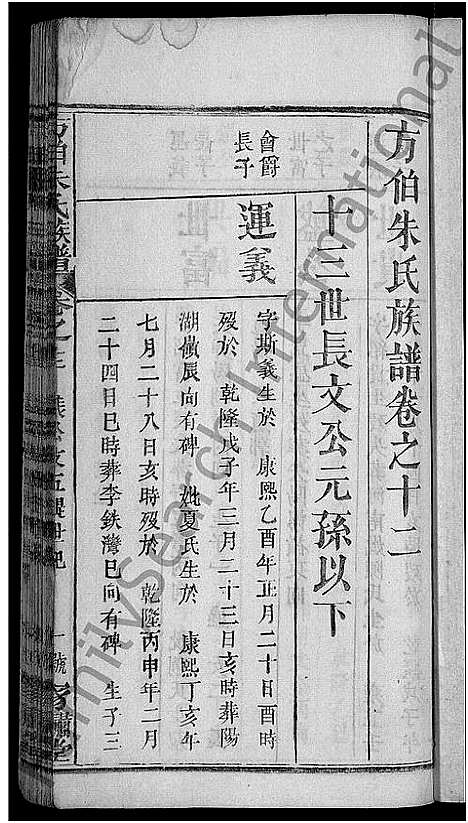 方伯朱氏族譜卷之十二
十三世長文公元孫以下
會爵
長子
運義
字斯義生於 康熙乙酉年正月二十日酉時
歿於 乾隆戊子年三月二十三日亥時葬陽
湖 辰向有碑 妣夏氏生於 康熙丁亥年
七月二十八日亥時歿於 乾隆丙申年二月
二十四日巳時葬李鉄灣巳向有碑 生子三
方伯朱氏族譜 卷之十二
一號
FamilySearch International